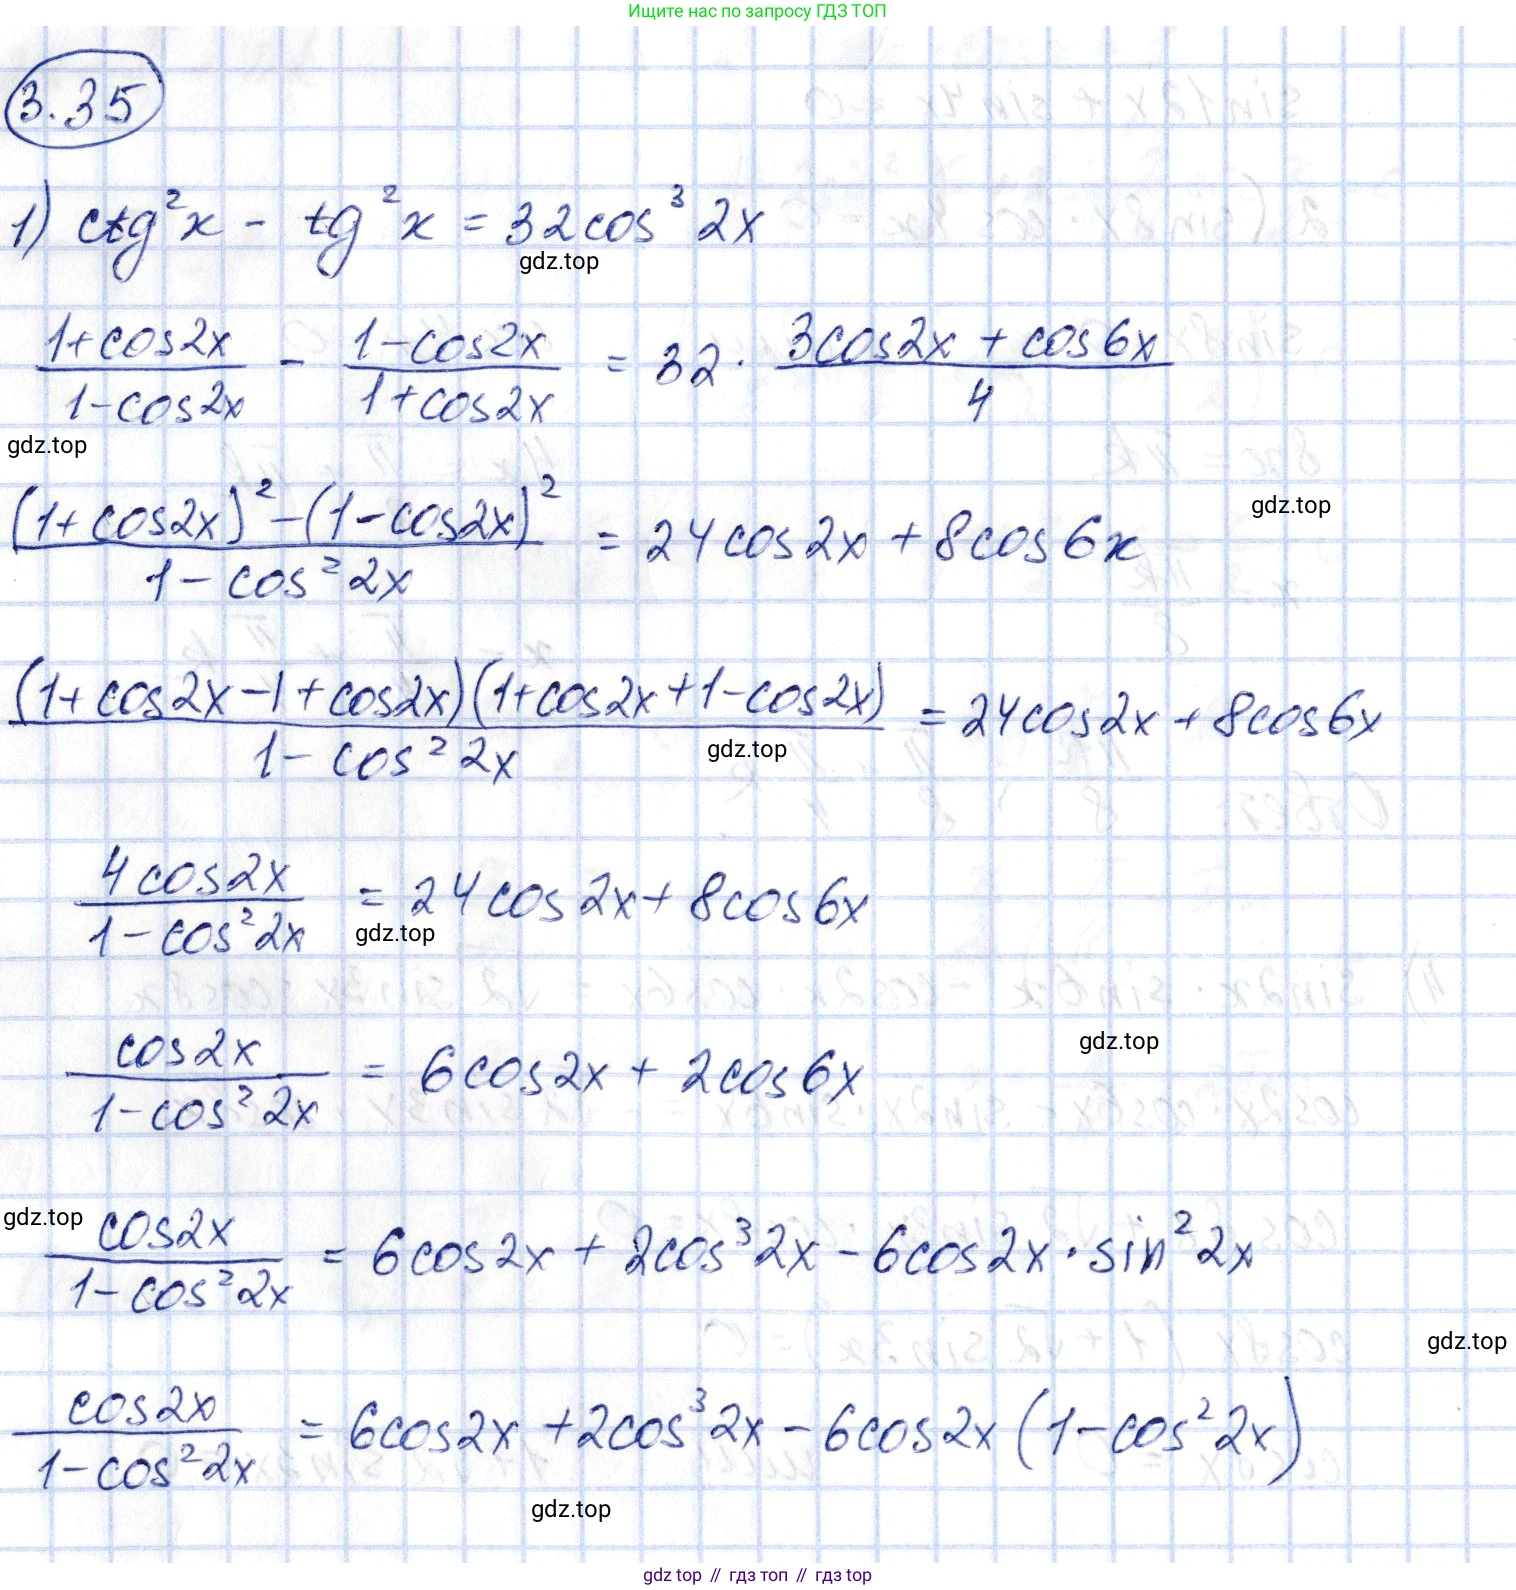 Ищите нас по запросу ГДЗ ТОП
3.35
1) ctg²x - tg²x = 32cos³ 2x
gdz.top
(1+cos2x)/(1-cos2x) - (1-cos2x)/(1+cos2x) = 32 · (3cos2x + cos6x)/4
gdz.top
gdz.top
((1+cos2x)² - (1-cos2x)²)/(1-cos²2x) = 24cos2x + 8cos6x
((1+cos2x-1+cos2x)(1+cos2x+1-cos2x))/(1-cos²2x) = 24cos2x + 8cos6x
gdz.top
4cos2x/(1-cos²2x) = 24cos2x + 8cos6x
gdz.top
gdz.top
cos2x/(1-cos²2x) = 6cos2x + 2cos6x
gdz.top
cos2x/(1-cos²2x) = 6cos2x + 2cos³2x - 6cos2x · sin²2x
gdz.top
cos2x/(1-cos²2x) = 6cos2x + 2cos³2x - 6cos2x (1-cos²2x)
gdz.top
gdz top // гдз топ // гдз top